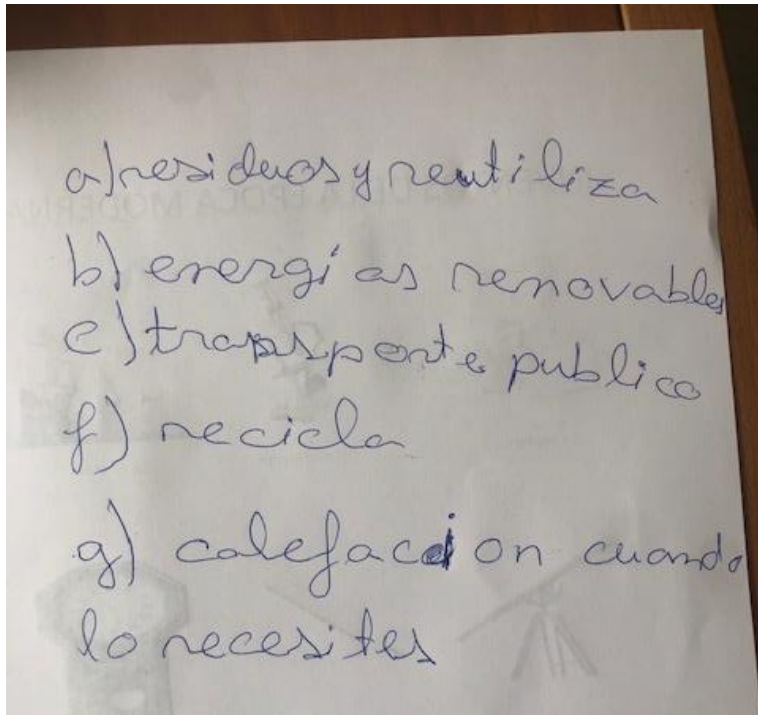 a) residuos y reutiliza
b) energías renovables
e) transporte publico
f) recicla
g) calefacion cuando
lo necesites
EPOCA MODERNA